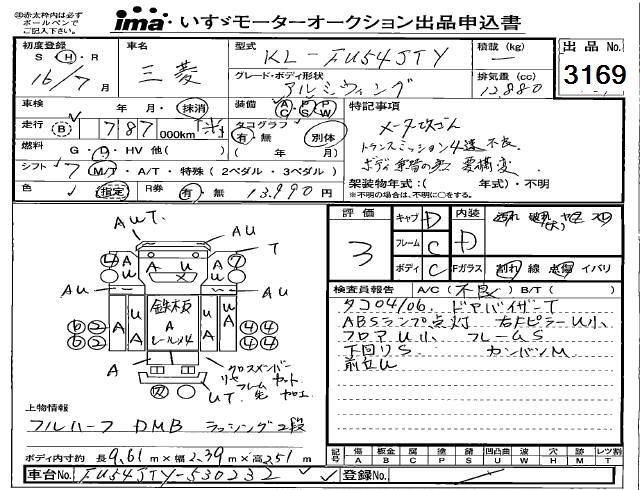 ㊟赤太枠内は必ず
ボールペンで
ご記入下さい。
ima いすゞモーターオークション出品申込書
初度登録 車名 型式 積載(kg) 出品No.
S・H・R 三菱 KL-FU54JTY
16年7月 グレード・ボディ形状 排気量(cc) 3169
アルミウィング 12,880
車検 年 月・抹消 装備 AC PS PW 特記事項
走行 (B) 787 000km タコグラフ
有・無 別体 メーター改ざん
燃料 G・D・HV 他( ) ( 年 月) トランスミッション4速不良
シフト 7 M/T・A/T・特殊(2ペダル/3ペダル) 架装物年式:( 年式)・不明
色 指定 R券 有・無 13,990円 ※不明の場合は、不明に○をする。
評価 キャブ D 内装
3 フレーム C D
ボディ C Fガラス 割れ 線 点傷 イバリ
検査員報告 A/C(不良) B/T( )
タコ04/06. ドアバイザーT
ABSランプ点灯 右ピラーU小
フロアU小 フレームS
下回りS カンバンM
前立U
AUT. AU
A U U A T
AU AU
鉄板
A
レール×4
A U U A
A
クロスメンバー
フレーム先 カット加工
UT.
上物情報
フルハーフ DMB ラッシング2段
ボディ内寸 約長9.61m×幅2.39m×高2.51m
記号 傷A 板金B 腐C 塗P 錆S 凹U 凸凹曲W 穴H 外M レツ割T
車台No. FU54JTY-530232 登録No.